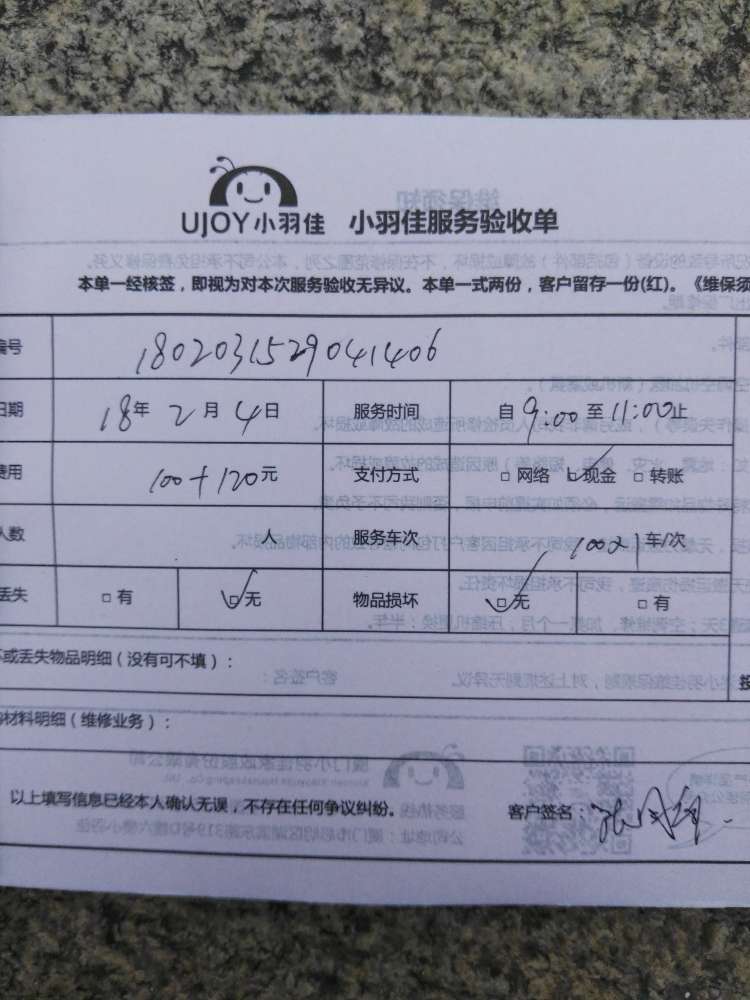 UJOY小羽佳 小羽佳服务验收单
本单一经核签，即视为对本次服务验收无异议。本单一式两份，客户留存一份(红)。《维保须
编号 1802031529041406
日期 18年2月4日 服务时间 自9:00至11:00止
费用 100+120元 支付方式 □网络 ☑现金 □转账
人数 人 服务车次 1002 1车/次
丢失 □有 ☑无 物品损坏 ☑无 □有
坏或丢失物品明细（没有可不填）：
材料明细（维修业务）：
以上填写信息已经本人确认无误，不存在任何争议纠纷。 客户签名：